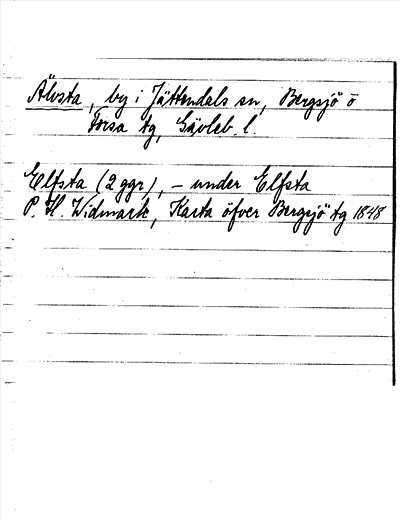 Älvsta, by i Jättendals sn, Bergsjö o
Forsa tg, Gävleb. l.
Elfsta (2 ggr), – under Elfsta
P. H. Widmark, Karta öfver Bergsjö tg 1848